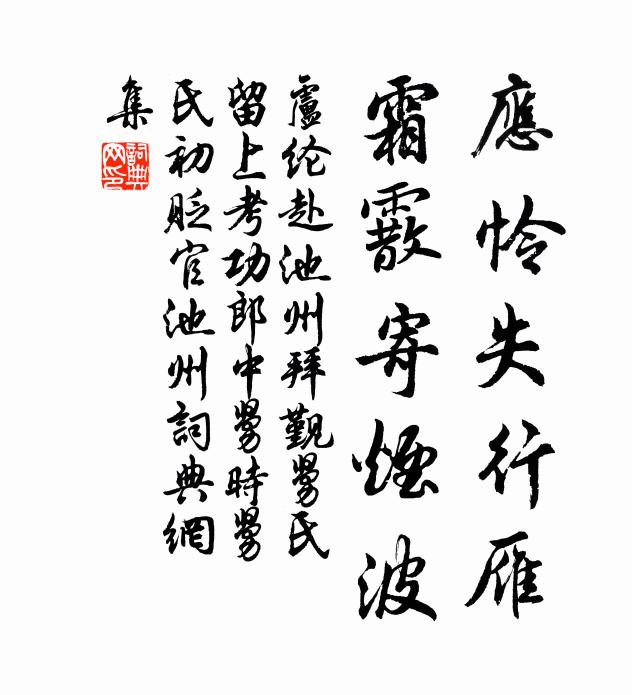 應怜失行雁
霜霰寄煙波
盧纶赴池州拜覲舅氏
留上考功郎中舅時舅
氏初貶官池州詞典網
集
詞典
网印